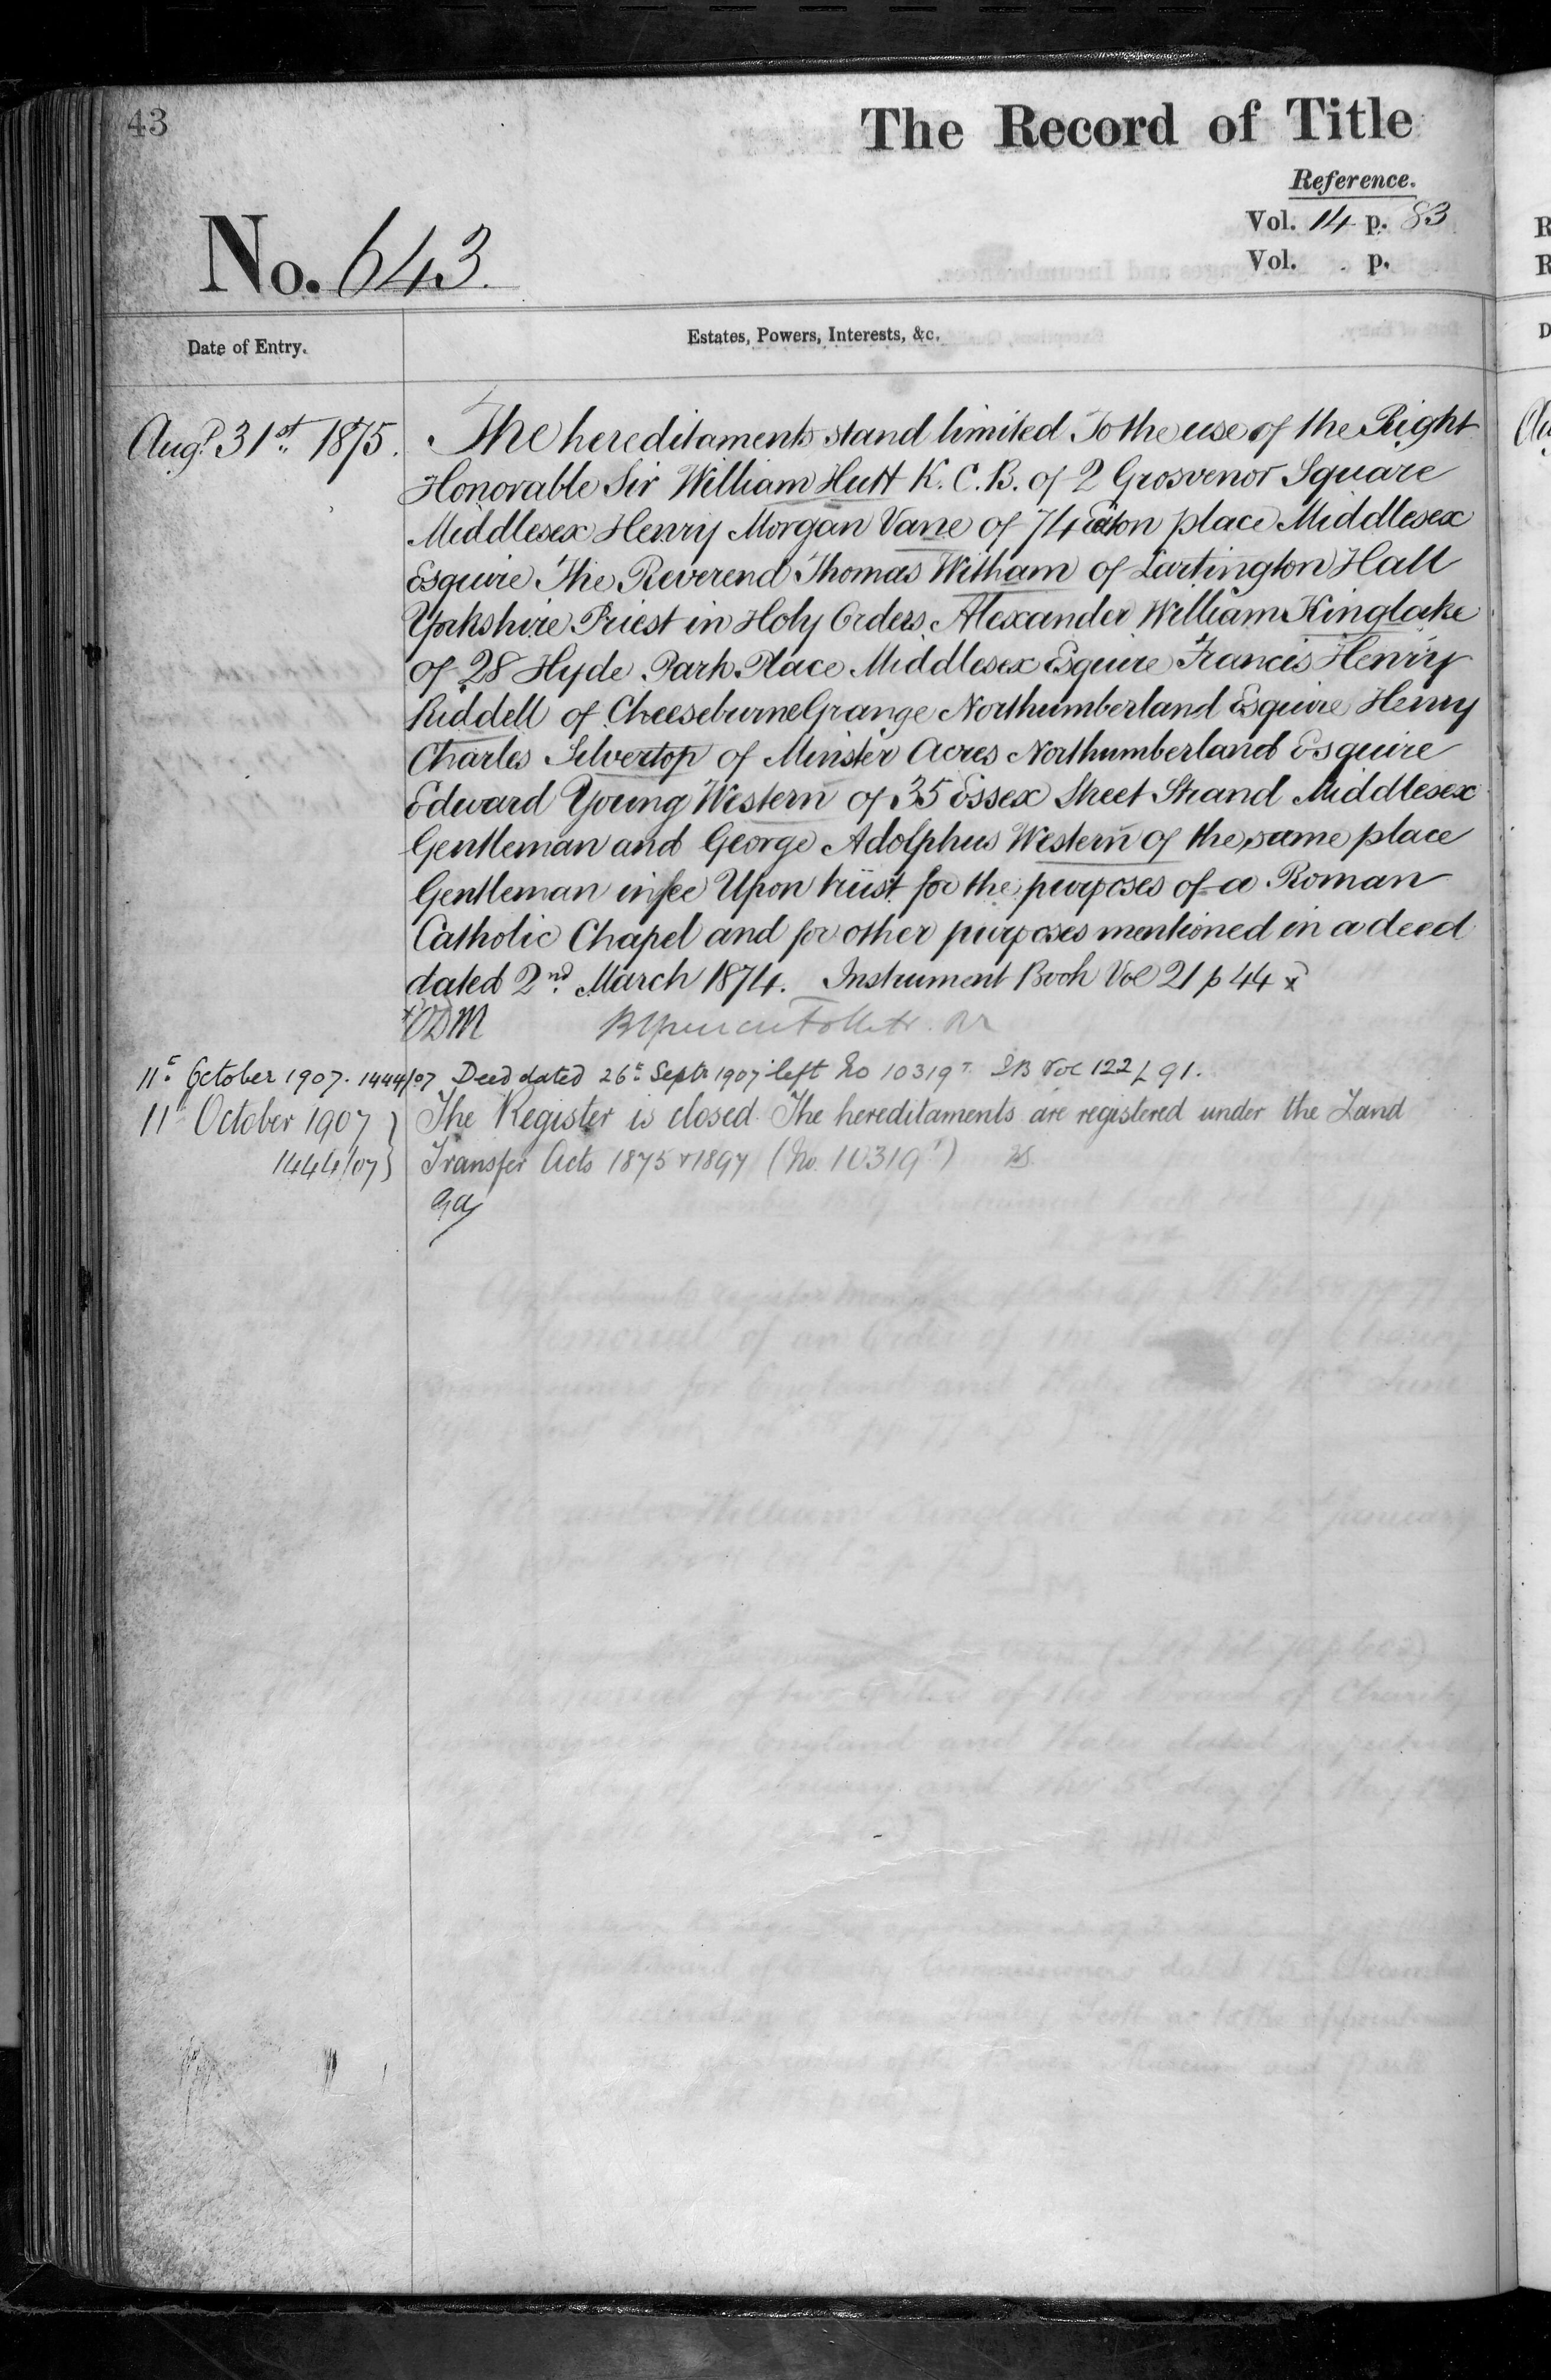 43
The Record of Title
Reference.
Vol. 14 p. 83
Vol. p.
No. 643.
Date of Entry.
Estates, Powers, Interests, &c.
Augt. 31st. 1875.
The hereditaments stand limited To the use of the Right
Honorable Sir William Hutt K.C.B. of 2 Grosvenor Square
Middlesex Henry Morgan Vane of 74 Eaton place Middlesex
Esquire The Reverend Thomas Witham of Lartington Hall
Yorkshire Priest in Holy Orders Alexander William Kinglake
of 28 Hyde Park Place Middlesex Esquire Francis Henry
Riddell of Cheeseburne Grange Northumberland Esquire Henry
Charles Silvertop of Minster Acres Northumberland Esquire
Edward Young Western of 35 Essex Street Strand Middlesex
Gentleman and George Adolphus Western of the same place
Gentleman in fee Upon trust for the purposes of a Roman
Catholic Chapel and for other purposes mentioned in a deed
dated 2nd. March 1874. Instrument Book Vol 21 p 44 x
x ODM
11th October 1907. 1444/07 Deed dated 26th Septr 1907 left No 10319 IB Vol 122 p 91.
11th October 1907 } The Register is closed. The hereditaments are registered under the Land
1444/07 } Transfer Acts 1875 & 1897 (No. 10319)